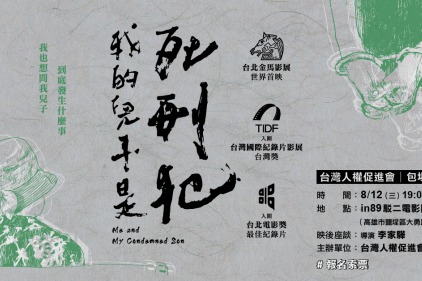 我的兒子是
死刑犯
Me and
My Condemned Son
我也想問我兒子
到底發生什麼事
台北金馬影展
世界首映
TIDF
入圍
台灣國際紀錄片影展
台灣獎
入圍
台北電影獎
最佳紀錄片
台灣人權促進會｜包場
時　間：8/12 (三) 19:0
地　點：in89駁二電影院
(高雄市鹽埕區大勇路
映後座談：導演 李家驊
主辦單位：台灣人權促進會
#報名索票